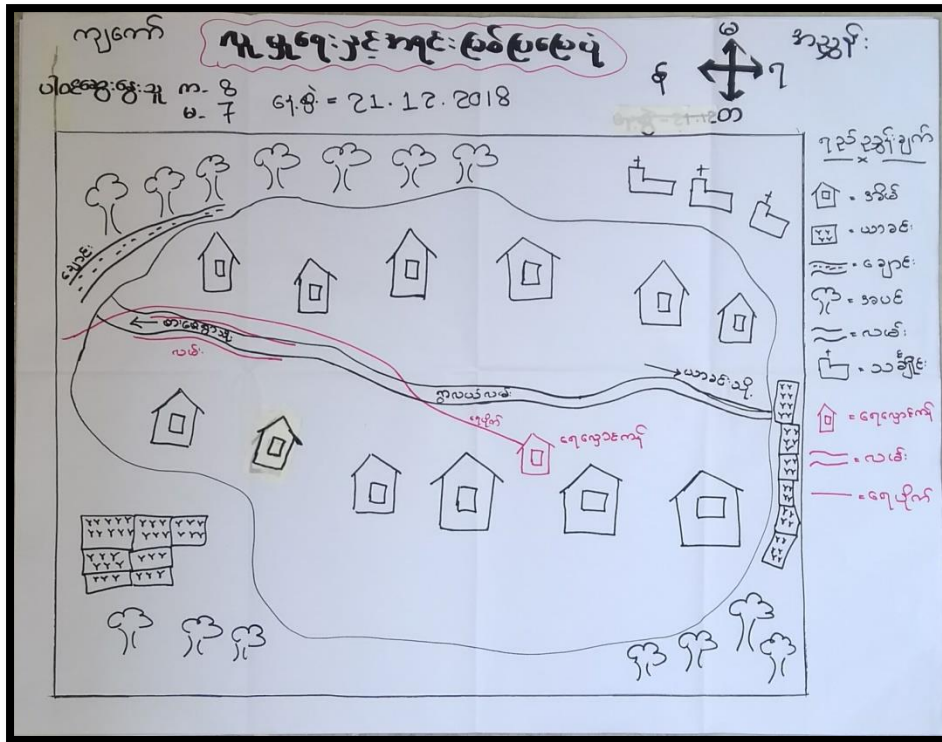 ကျကော်
လူမှုရေးနှင့်အရင်းမြစ်ပြမြေပုံ
အညွှန်း
မ
န
ရ
တ
ပါဝင်ဆွေးနွေးသူ က - 8
မ - 7
နေ့စွဲ = 21.12.2018
ရည်ညွှန်းချက်
= အိမ်
= ယာခင်း
= ချောင်း
= အပင်
= လမ်း
= သင်္ချိုင်း
= ရေလှောင်ကန်
= လမ်း
= ရေပိုက်
ချောင်း
လမ်း
ရွာလယ်လမ်း
ယာခင်းသို့
ရေပိုက်
ရေလှောင်ကန်